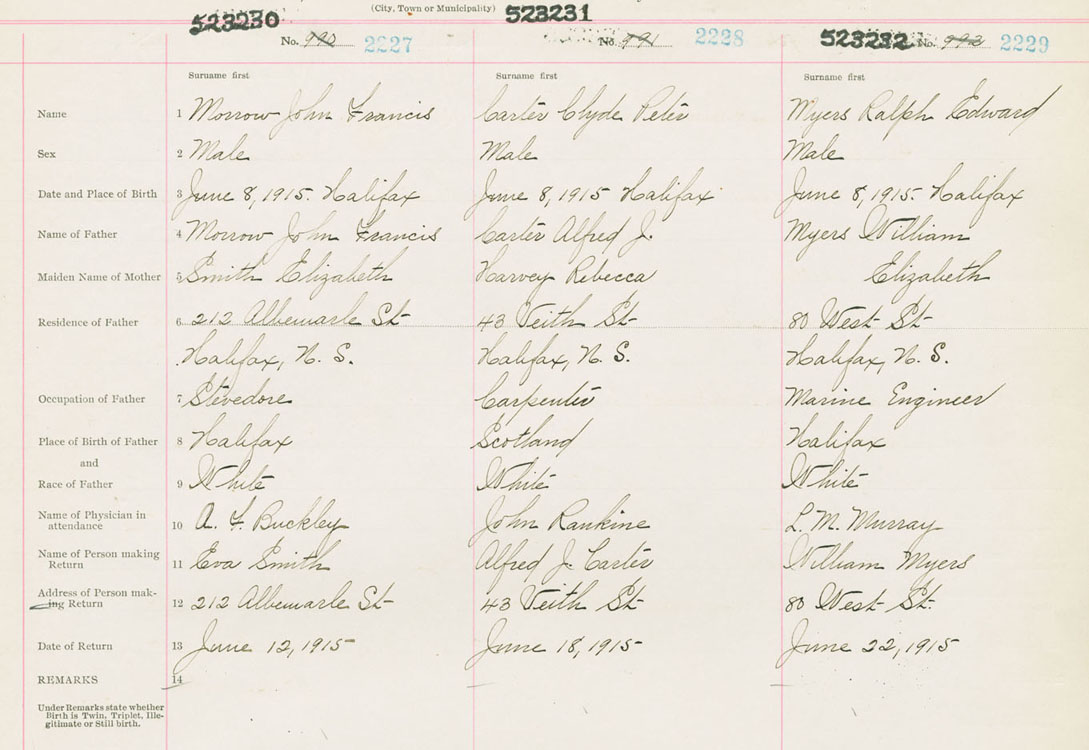 (City, Town or Municipality)
523230 523231
No. 990 2227 No. 991 2228 523232 No. 992 2229
Surname first Surname first Surname first
Name 1 Morrow John Francis Carter Clyde Peter Myers Ralph Edward
Sex 2 Male Male Male
Date and Place of Birth 3 June 8, 1915. Halifax June 8, 1915 Halifax June 8, 1915. Halifax
Name of Father 4 Morrow John Francis Carter Alfred J. Myers William
Maiden Name of Mother 5 Smith Elizabeth Harvey Rebecca Elizabeth
Residence of Father 6 212 Albemarle St 43 Veith St 80 West St
Halifax, N. S. Halifax, N. S. Halifax, N. S.
Occupation of Father 7 Stevedore Carpenter Marine Engineer
Place of Birth of Father 8 Halifax Scotland Halifax
and
Race of Father 9 White White White
Name of Physician in
attendance 10 A. F. Buckley John Rankine L. M. Murray
Name of Person making
Return 11 Eva Smith Alfred J. Carter William Myers
Address of Person mak-
ing Return 12 212 Albemarle St 43 Veith St 80 West St.
Date of Return 13 June 12, 1915 June 18, 1915 June 22, 1915
REMARKS 14
Under Remarks state whether
Birth is Twin, Triplet, Ille-
gitimate or Still birth.